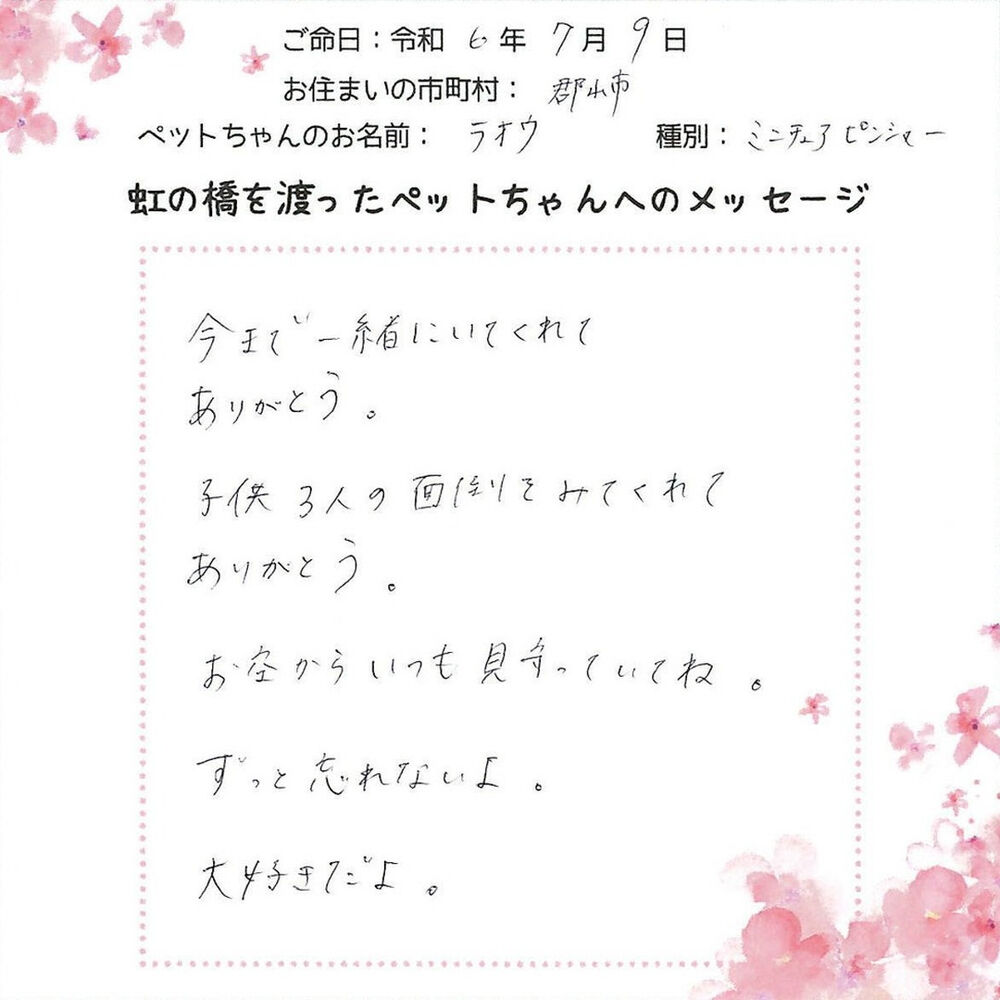 ご命日：令和 6 年 7 月 9 日
お住まいの市町村： 郡山市
ペットちゃんのお名前： ラオウ 種別： ミニチュアピンシャー
虹の橋を渡ったペットちゃんへのメッセージ
今まで一緒にいてくれて
ありがとう。
子供3人の面倒をみてくれて
ありがとう。
お空からいつも見守っていてね。
ずっと忘れないよ。
大好きだよ。